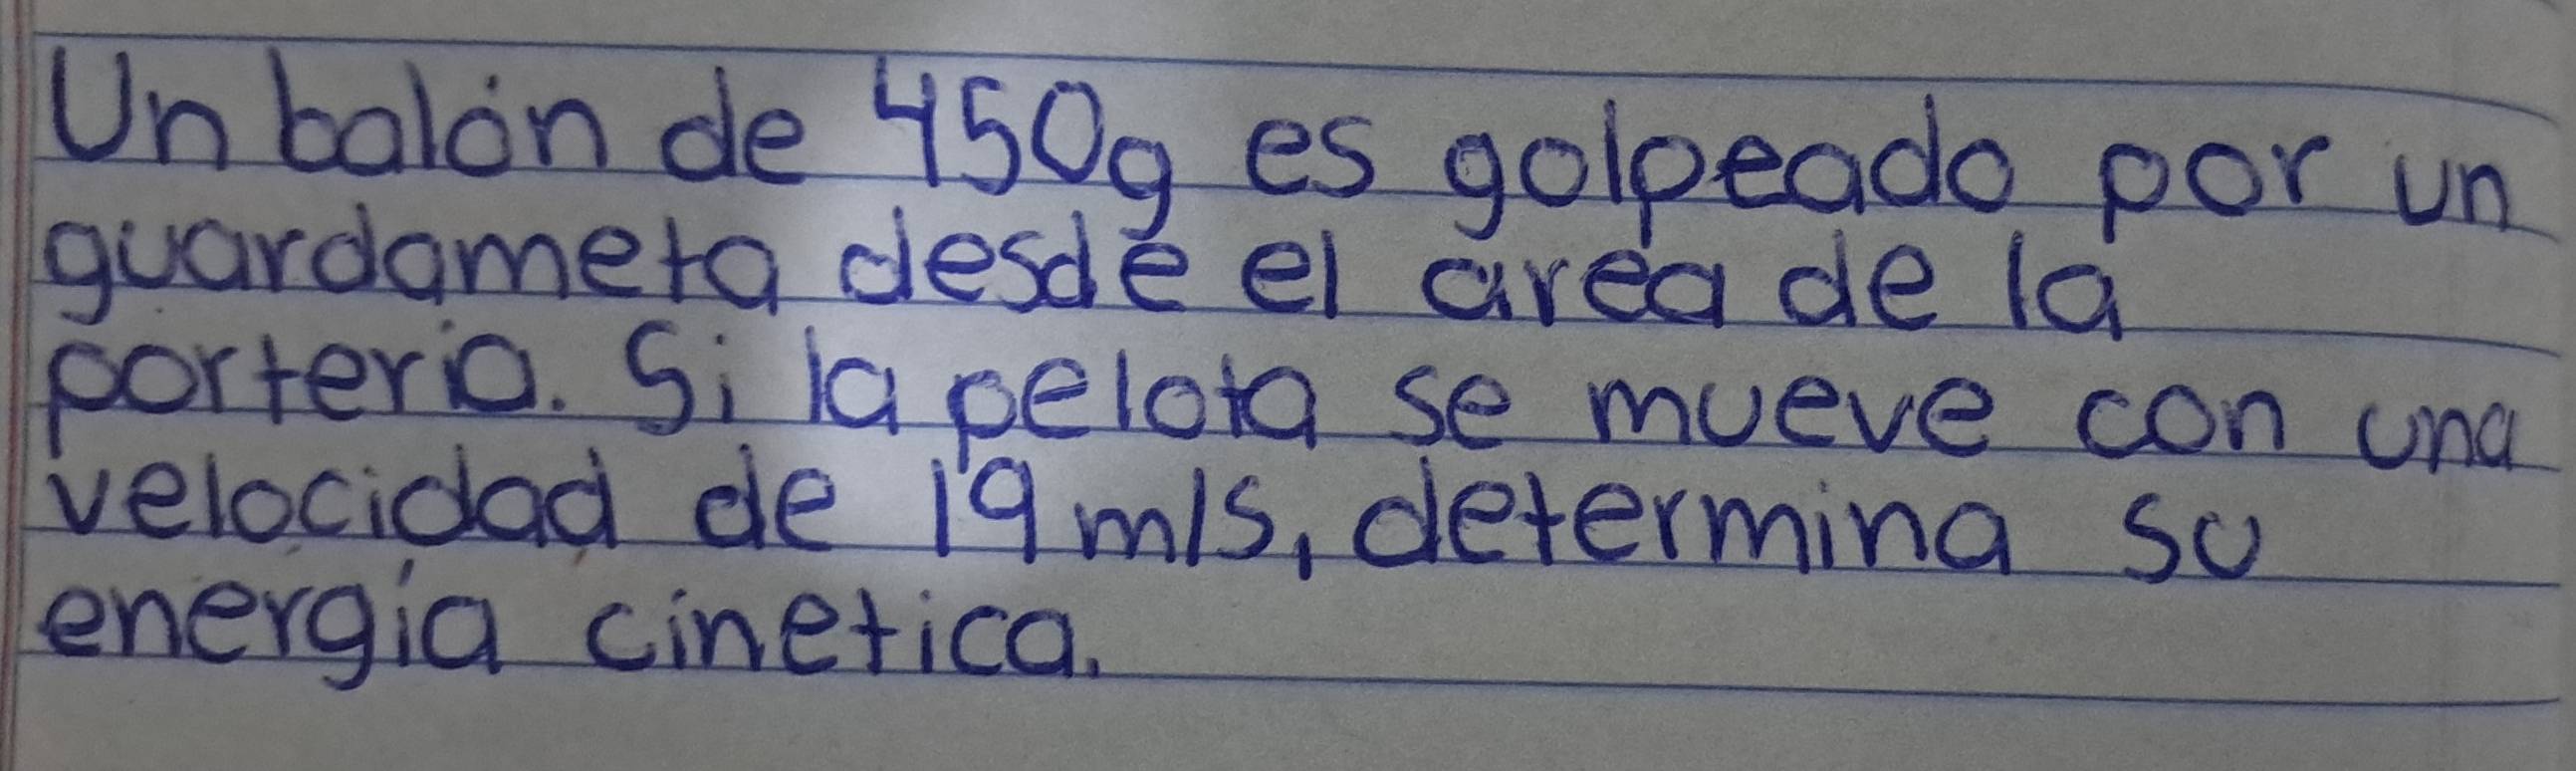 Un balón de 450g es golpeado por un
guardameta desde el area de la
portería. Si la pelota se mueve con una
velocidad de 19 m/s, determina su
energía cinetica.